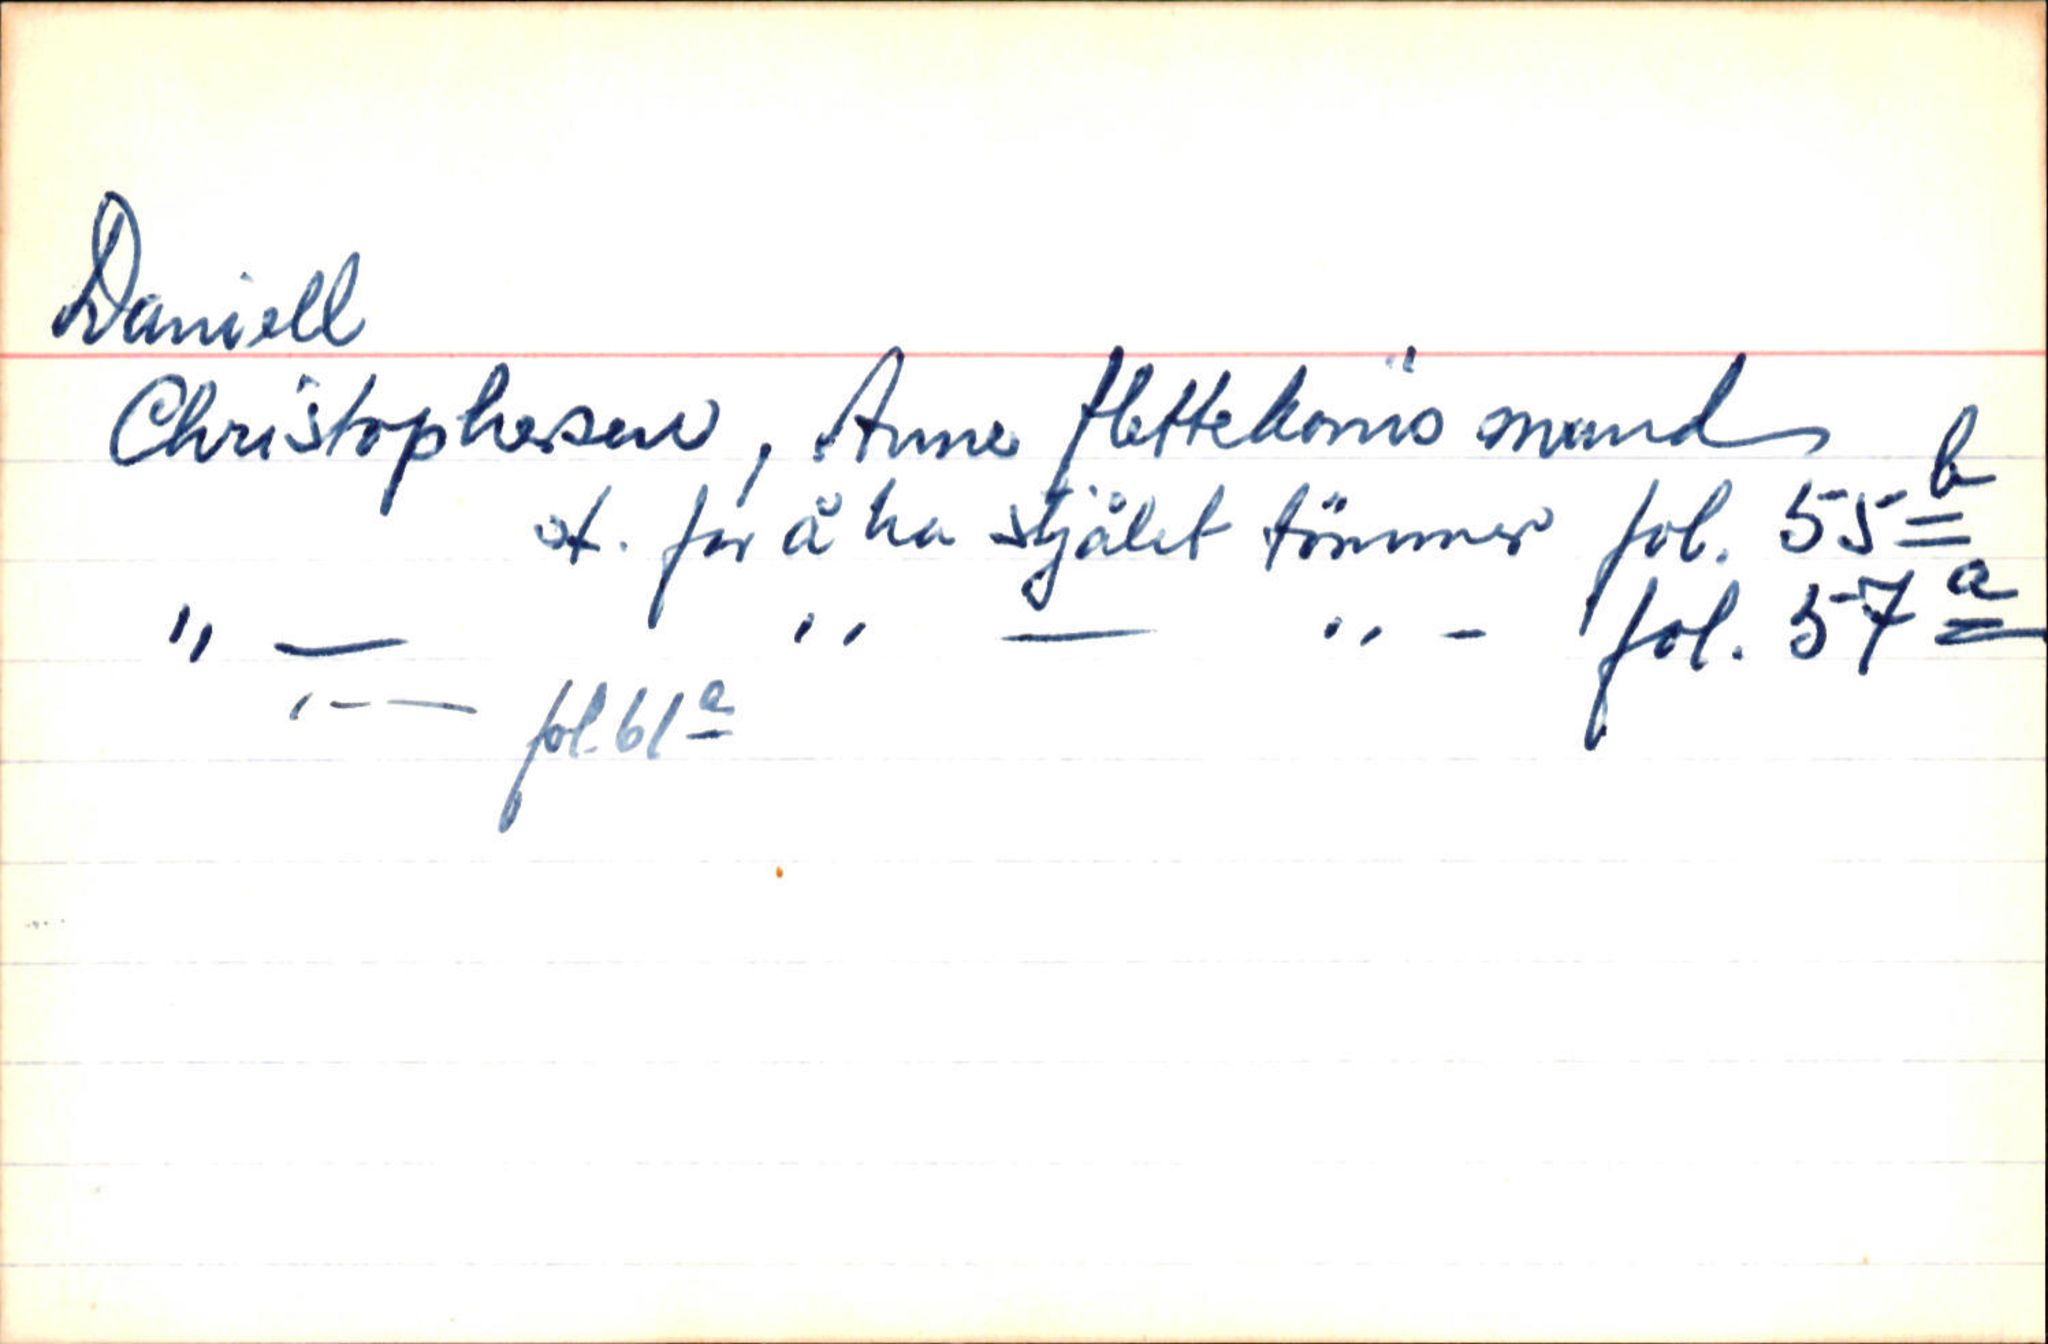 Daniell
Christophersen, Anne flettekonis mand
st. for å ha stjålet tömmer fol. 55 b
" — " — " - fol. 57 a
" — fol. 61 a